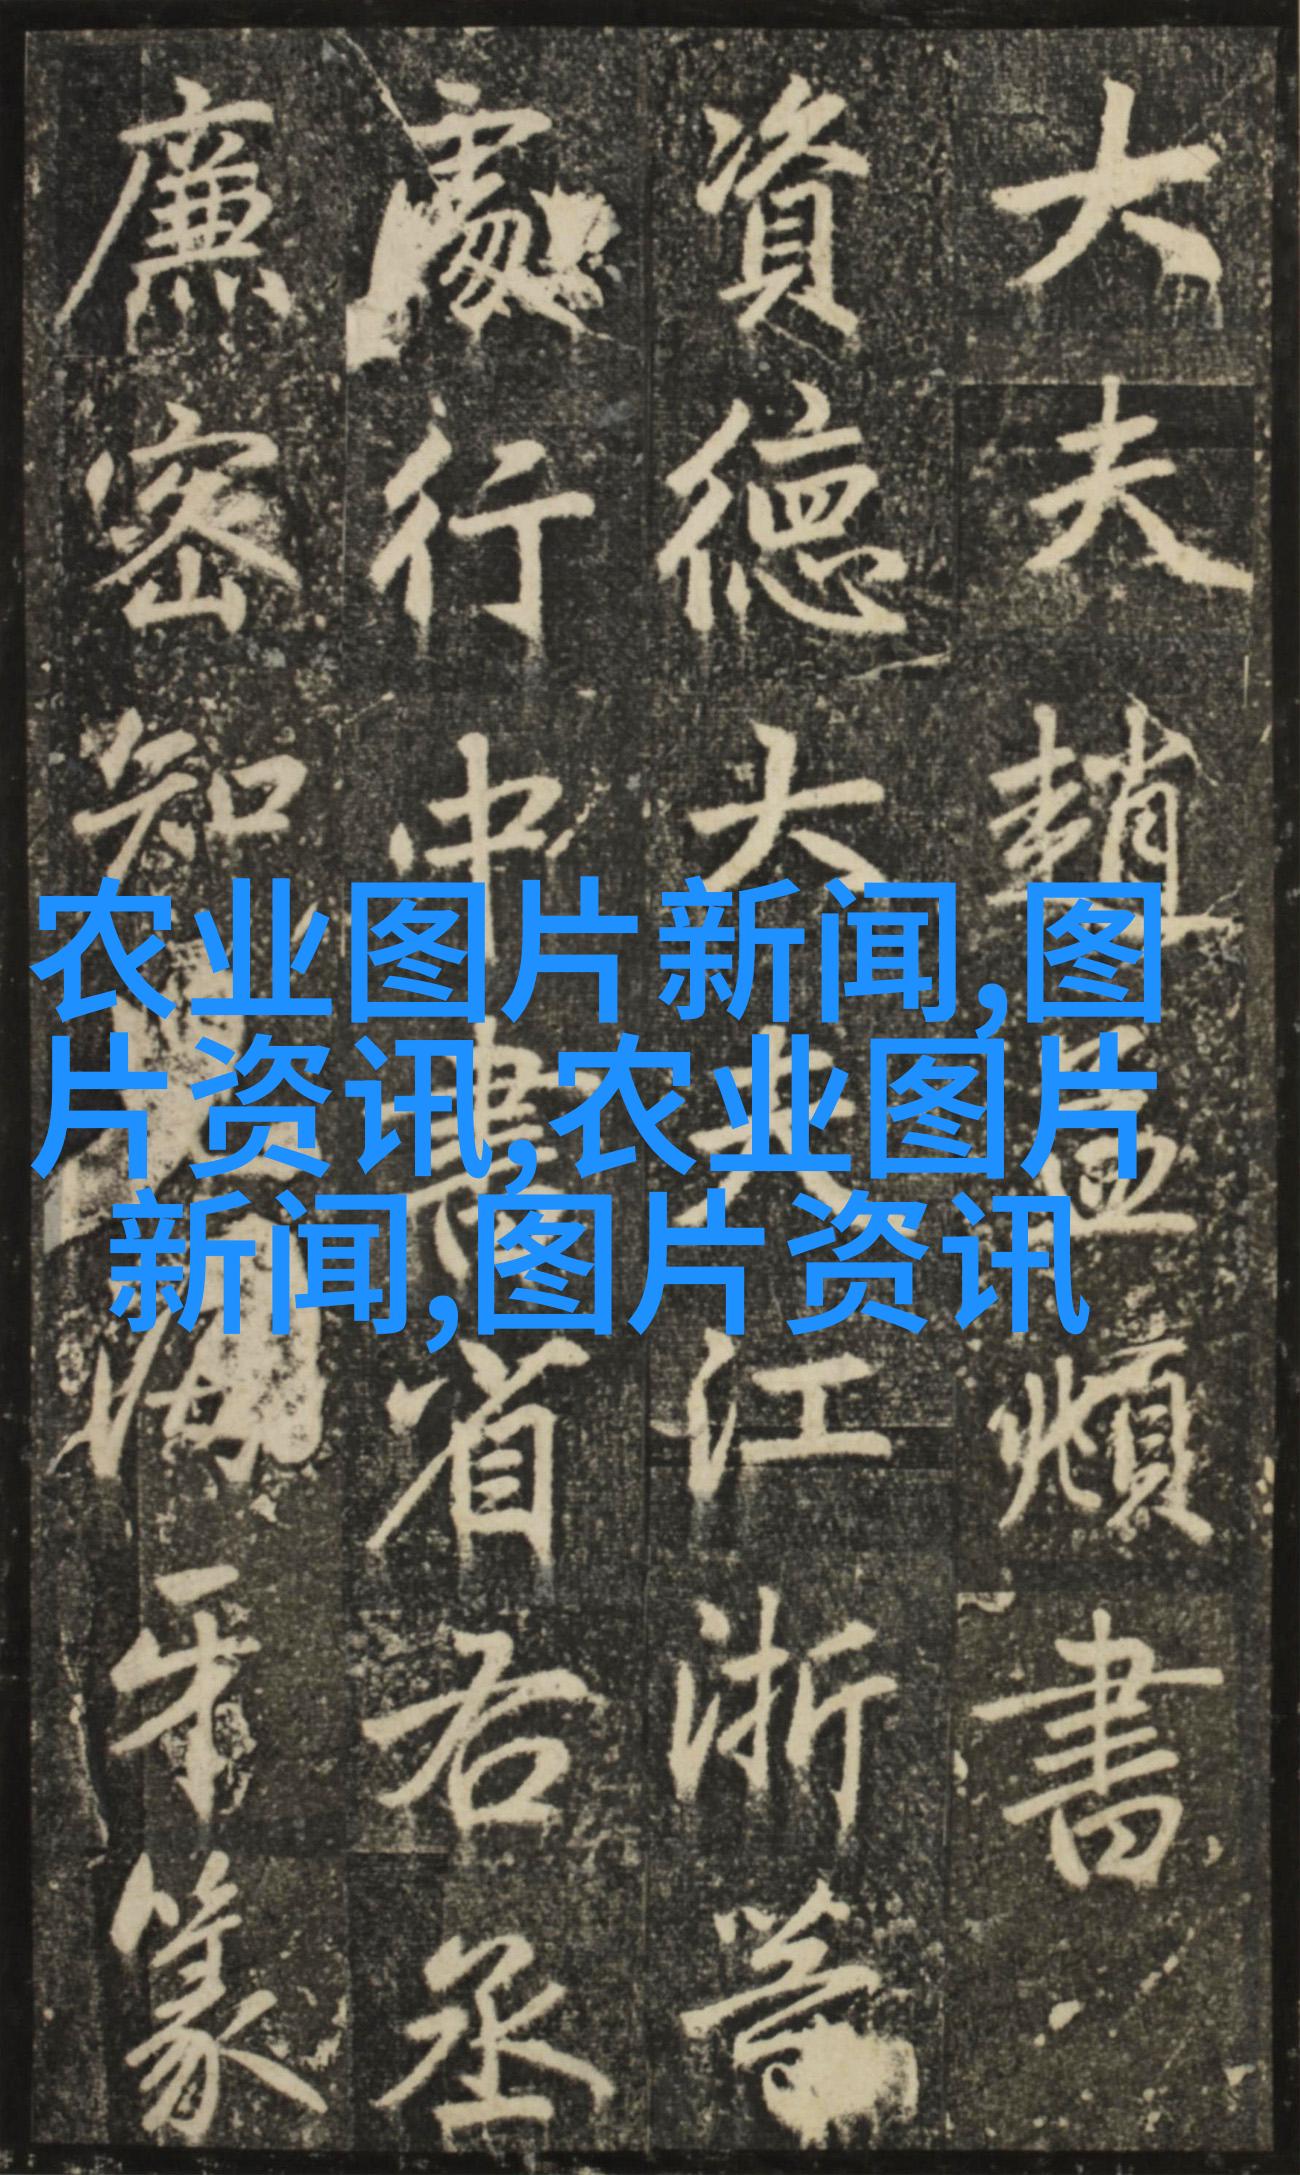 大夫趙孟頫書
資德大夫江浙等
處行中書省右丞
廉密知海牙篆
农业图片新闻,图
片资讯,农业图片
新闻,图片资讯